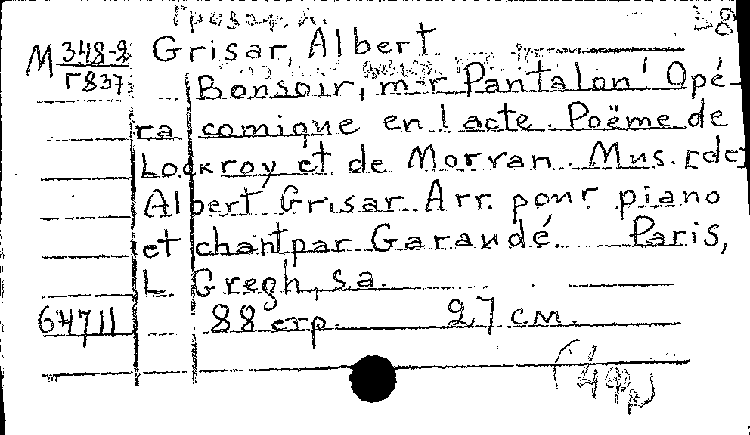 Гризар, А.
М 348-2 Grisar, Albert
Г837 Bonsoir, m-r Pantalon! Opé-
ra comique en 1 acte. Poëme de
Lockroy et de Morvan. Mus. [de]
Albert Grisar. Arr. pour piano
et chant par Garaudé. Paris,
L. Gregh, s.a.
64711 88 стр. 27 см.
(4 фр)